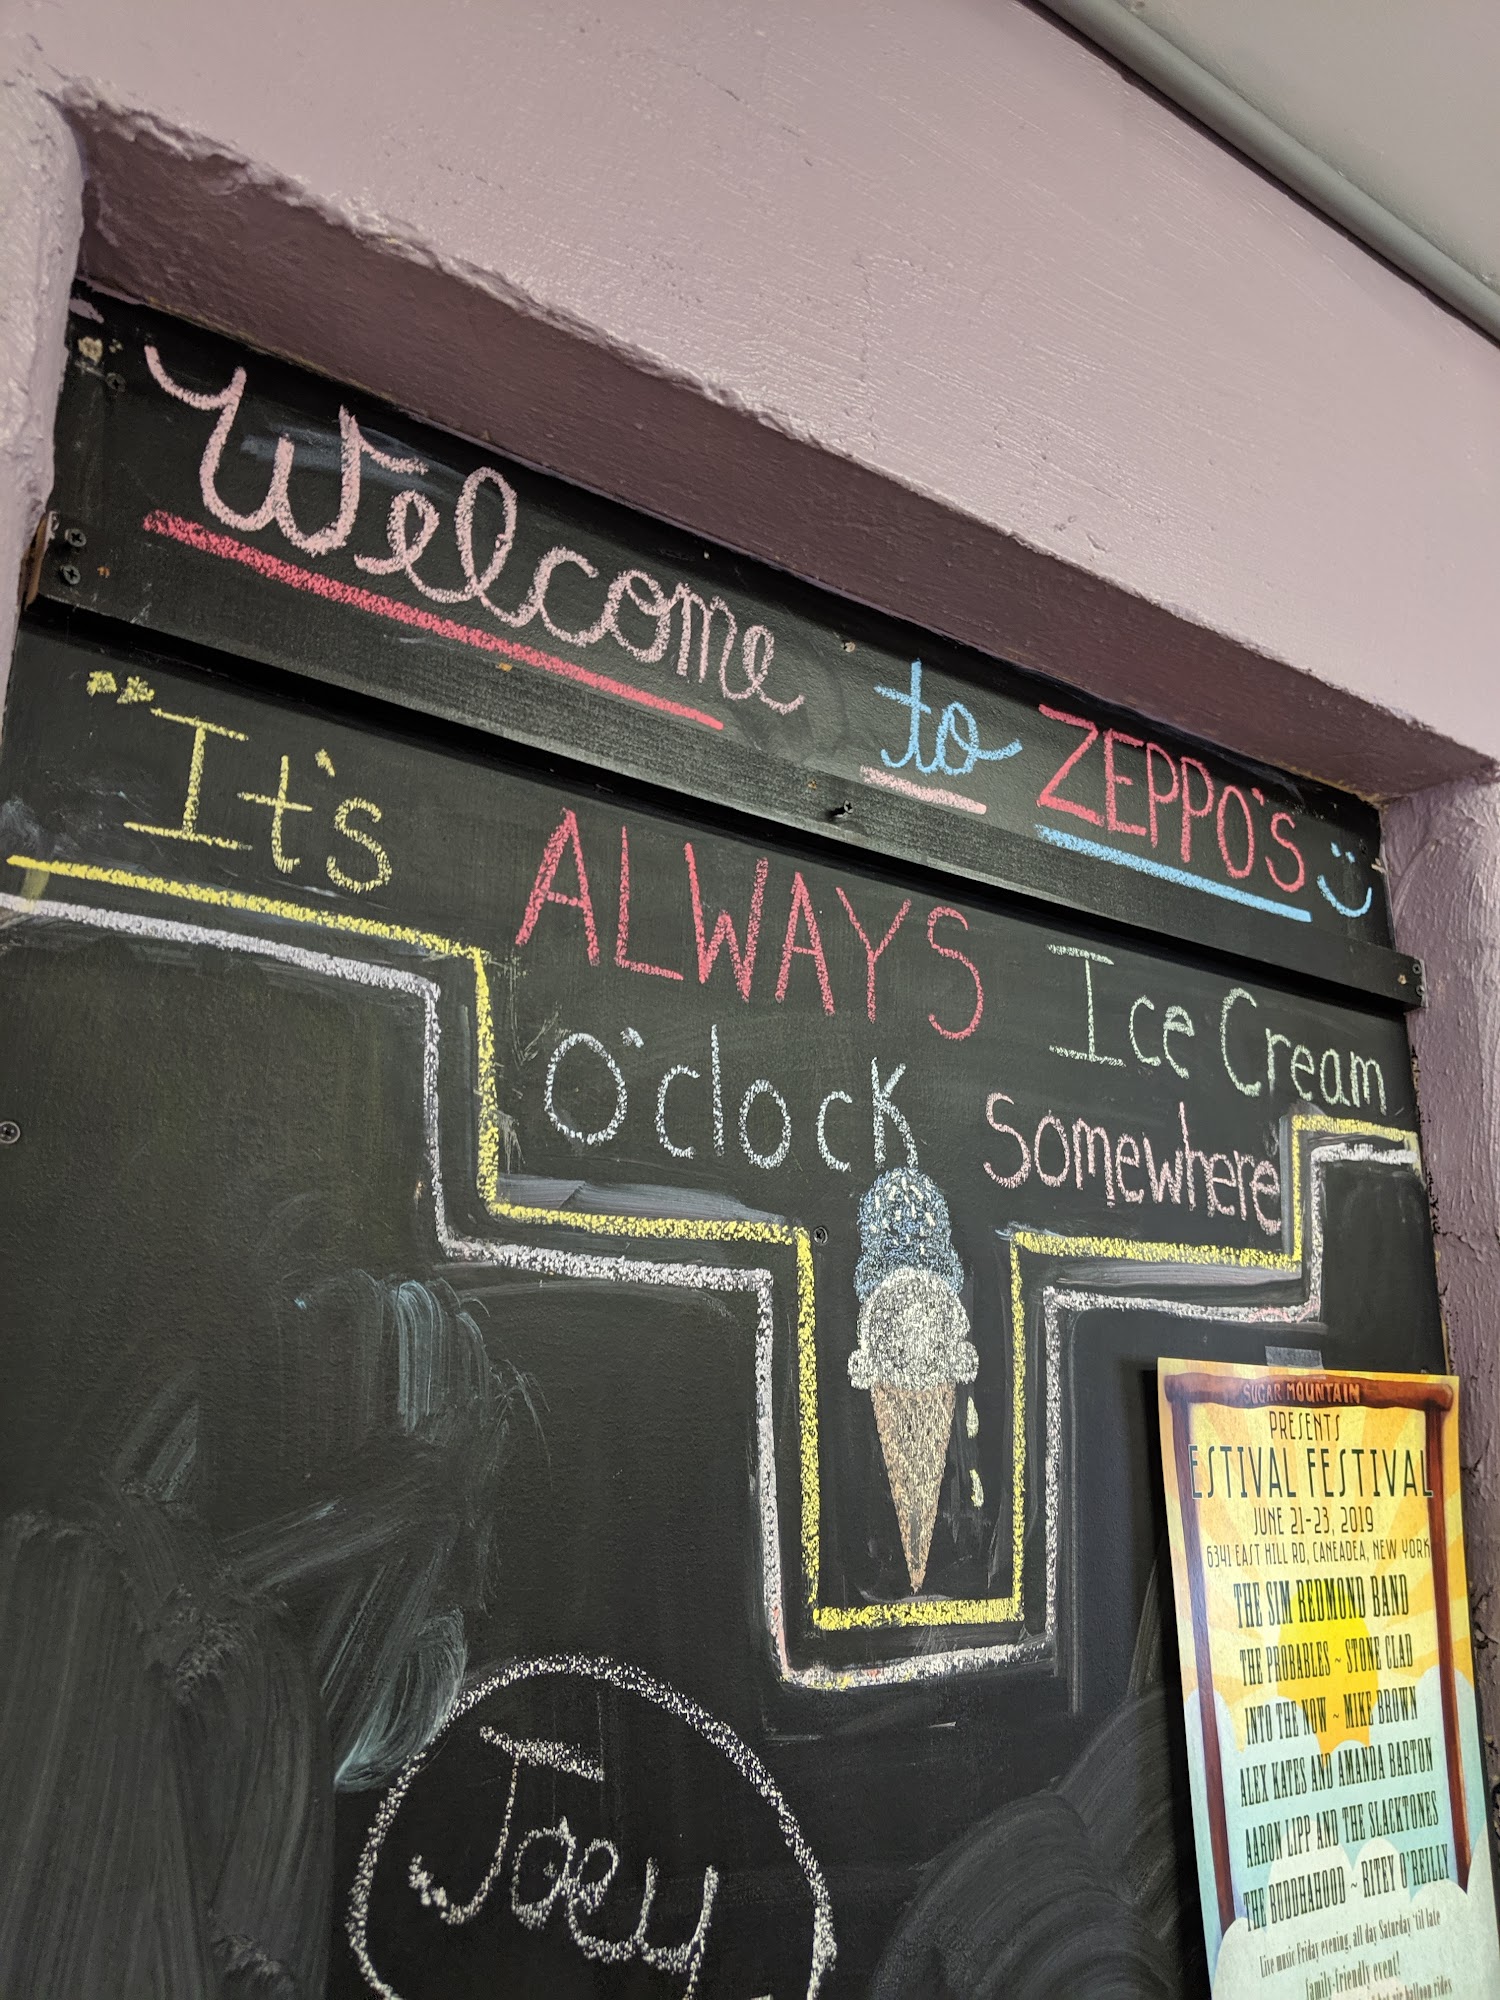 Welcome to ZEPPO'S
"It's ALWAYS Ice Cream
O'clock Somewhere
Joey
SUGAR MOUNTAIN
PRESENTS
ESTIVAL FESTIVAL
JUNE 21-23, 2019
6341 EAST HILL RD, CANEADEA, NEW YORK
THE SIM REDMOND BAND
THE PROBABLES ~ STONE CLAD
INTO THE NOW ~ MIKE BROWN
ALEX KATES AND AMANDA BARTON
AARON LIPP AND THE SLACKTONES
THE BUDDHAHOOD ~ RITEY O'REILLY
Live music Friday evening, all day Saturday 'til late
family-friendly event!
air balloon rides